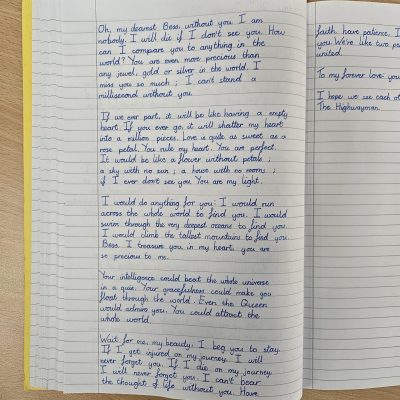 Oh, my dearest Bess, without you I am
nobody. I will die if I don't see you. How
can I compare you to anything in the
world? You are even more precious than
any jewel, gold or silver in the world. I
miss you so much ; I can't stand a
millisecond without you.
If we ever part, it will be like having a empty
heart. If you ever go, it will shatter my heart
into a million pieces. Love is quite as sweet as a
rose petal. You rule my heart. You are perfect.
It would be like a flower without petals ;
a sky with no sun ; a house with no rooms ;
if I ever don't see you. You are my light.
I would do anything for you: I would run
across the whole world to find you. I would
swim through the very deepest oceans to find you.
I would climb the tallest mountains to find you
Bess. I treasure you in my heart, you are
so precious to me.
Your intelligence could beat the whole universe
in a quiz. Your gracefulness could make you
float through the world. Even the Queen
would admire you. You could attract the
whole world.
Wait for me, my beauty. I beg you to stay.
If I get injured on my journey. I will
never forget you. If I die on my journey.
I will never forget you. I can't bear
the thought of life without you. Have
faith have patience. I
you. We're like two
united.
To my forever love you
I hope we see each ot
The Highwayman.